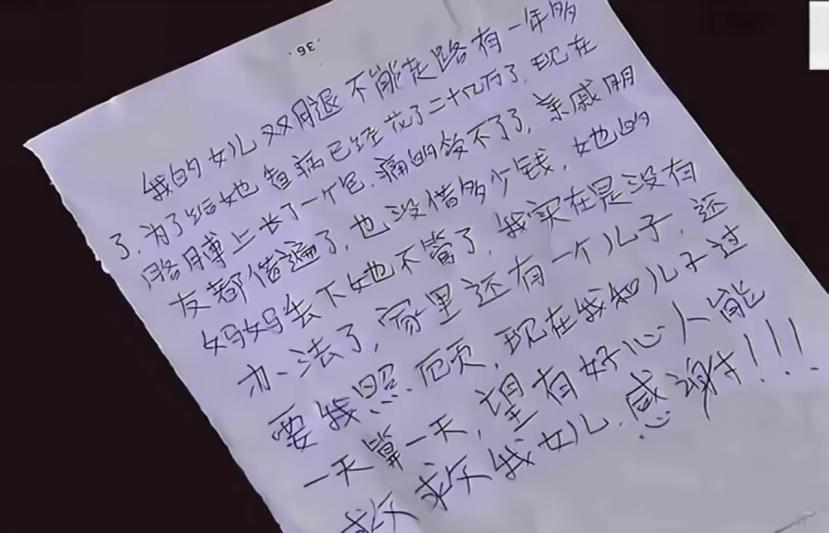 .36.
我的女儿双月退不能走路有一年多
了.为了给她看病已经花了二十几万了.现在
胳膊上长了一个包.痛的受不了了,亲戚朋
友都借遍了,也没借多少钱,她的
妈妈丢下她不管了,我实在是没有
办法了,家里还有一个儿子,还
要我照顾,现在我和儿子过
一天算一天,望有好心人能
救救我女儿.感谢!!!